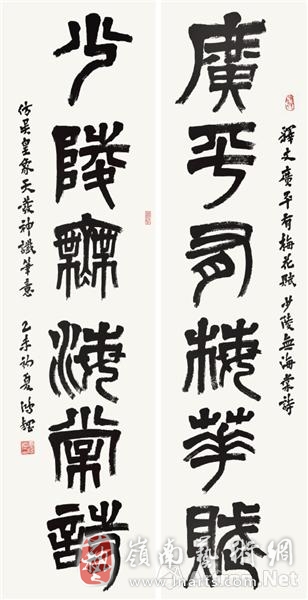 釋文廣平有梅花賦少陵無海棠詩
廣平有梅華賦
少陵無海棠詩
仿吳皇象天發神讖筆意 乙未初夏
嶺南藝術網